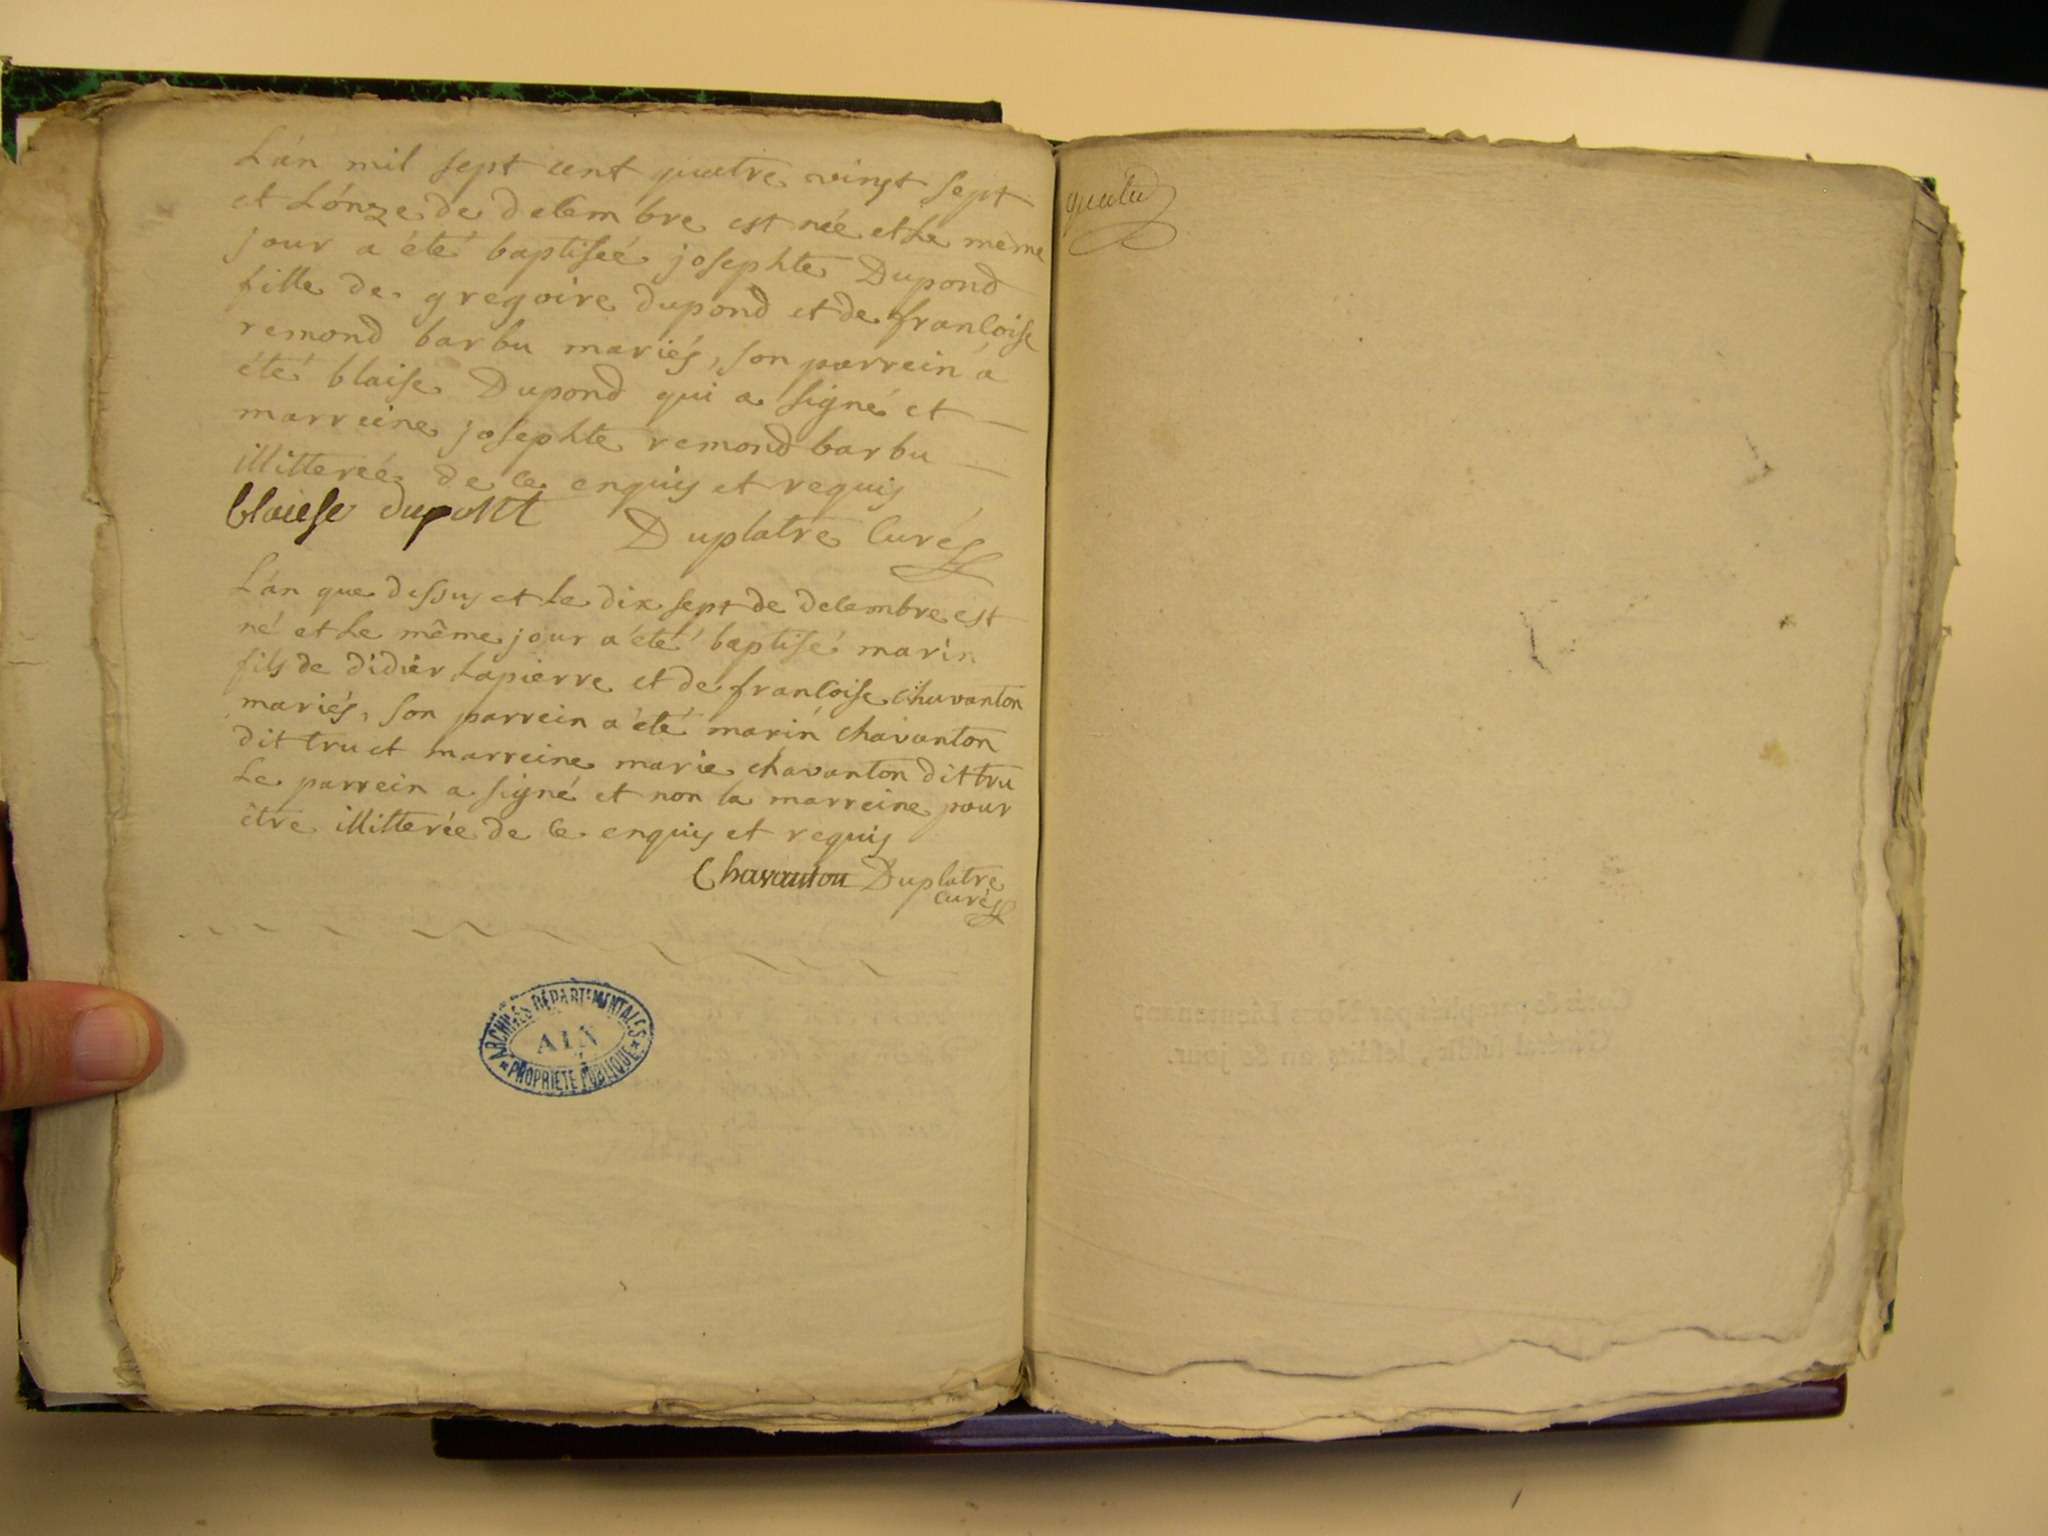 L'án mil sept cent quatre vingt sept
et L'ónze de decembre est née et Le même
jour a été baptiseé josephte Dupond
fille de gregoire dupond et de françoise
remond barbu mariés, son parrein á
été blaise Dupond qui a signé et
marreine josephte remond barbu
illitereé de ce enquis et requis
blaiese dupont Duplatre Curé
L'án que dessus et Le dix sept de decembre est
né et Le même jour a été baptisé marin
fils de didier Lapierre et de françoise chavanton
mariés, son parrein a été marin chavanton
dit tru et marreine marie chavanton dit tru
Le parrein a signé et non la marreine pour
être illiterée de ce enquis et requis
Chavanton Duplatre
curé
ARCHIVES DÉPARTEMENTALES
AIN
PROPRIÉTÉ PUBLIQUE